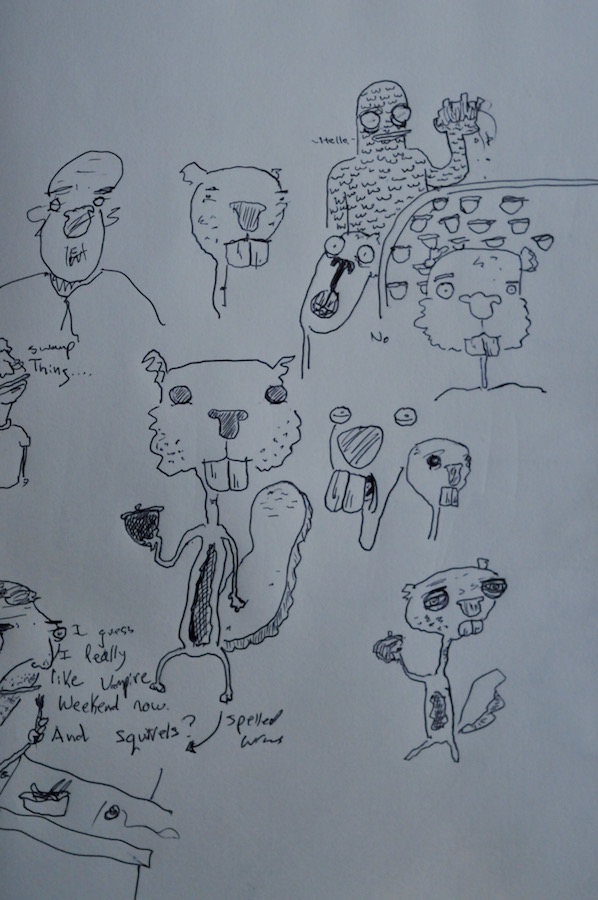 -Hello-
No
swamp
Thing....
I guess
I Really
like Vampire
Weekend now.
And squirrels?
spelled
wrong